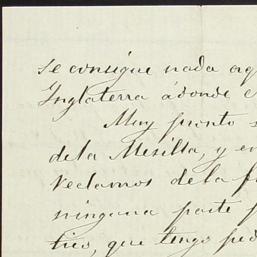 se consigue nada aq
Inglaterra ádonde e
Muy pronto s
de la Mesilla, y en
reclamos de la f
ninguna parte p
tios, que tengo ped